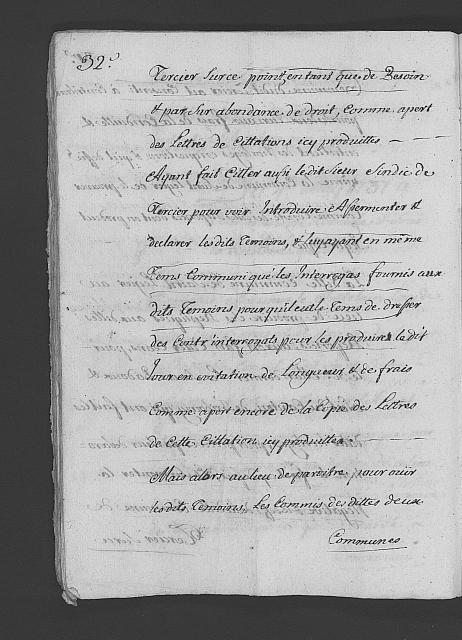 32.
Tercier Surce point, entant que de Besoin
& par Sur abondance de droit, Comme apert
des Lettres de Cittations icy produittes —
Ayant fait Citter ausi ledit Sieur Sindic de
Tercier pour voir Introduire, Assermenter &
declarer lesdits Temoins, & luy ayant en même
Tems Communiqué les Interrogas fournis aux
dits Temoins pour qu'il eut le Tems de dresser
des Contr'interrogats pour les produire ledit
Jour en evitation de Longueur & de frais
Comme apert encore de la Copie des Lettres
de Cette Cittation icy produittes. —
Mais alors au lieu de paroitre pour ouir
lesdits Temoins, Les Commis des dittes deux
Communes